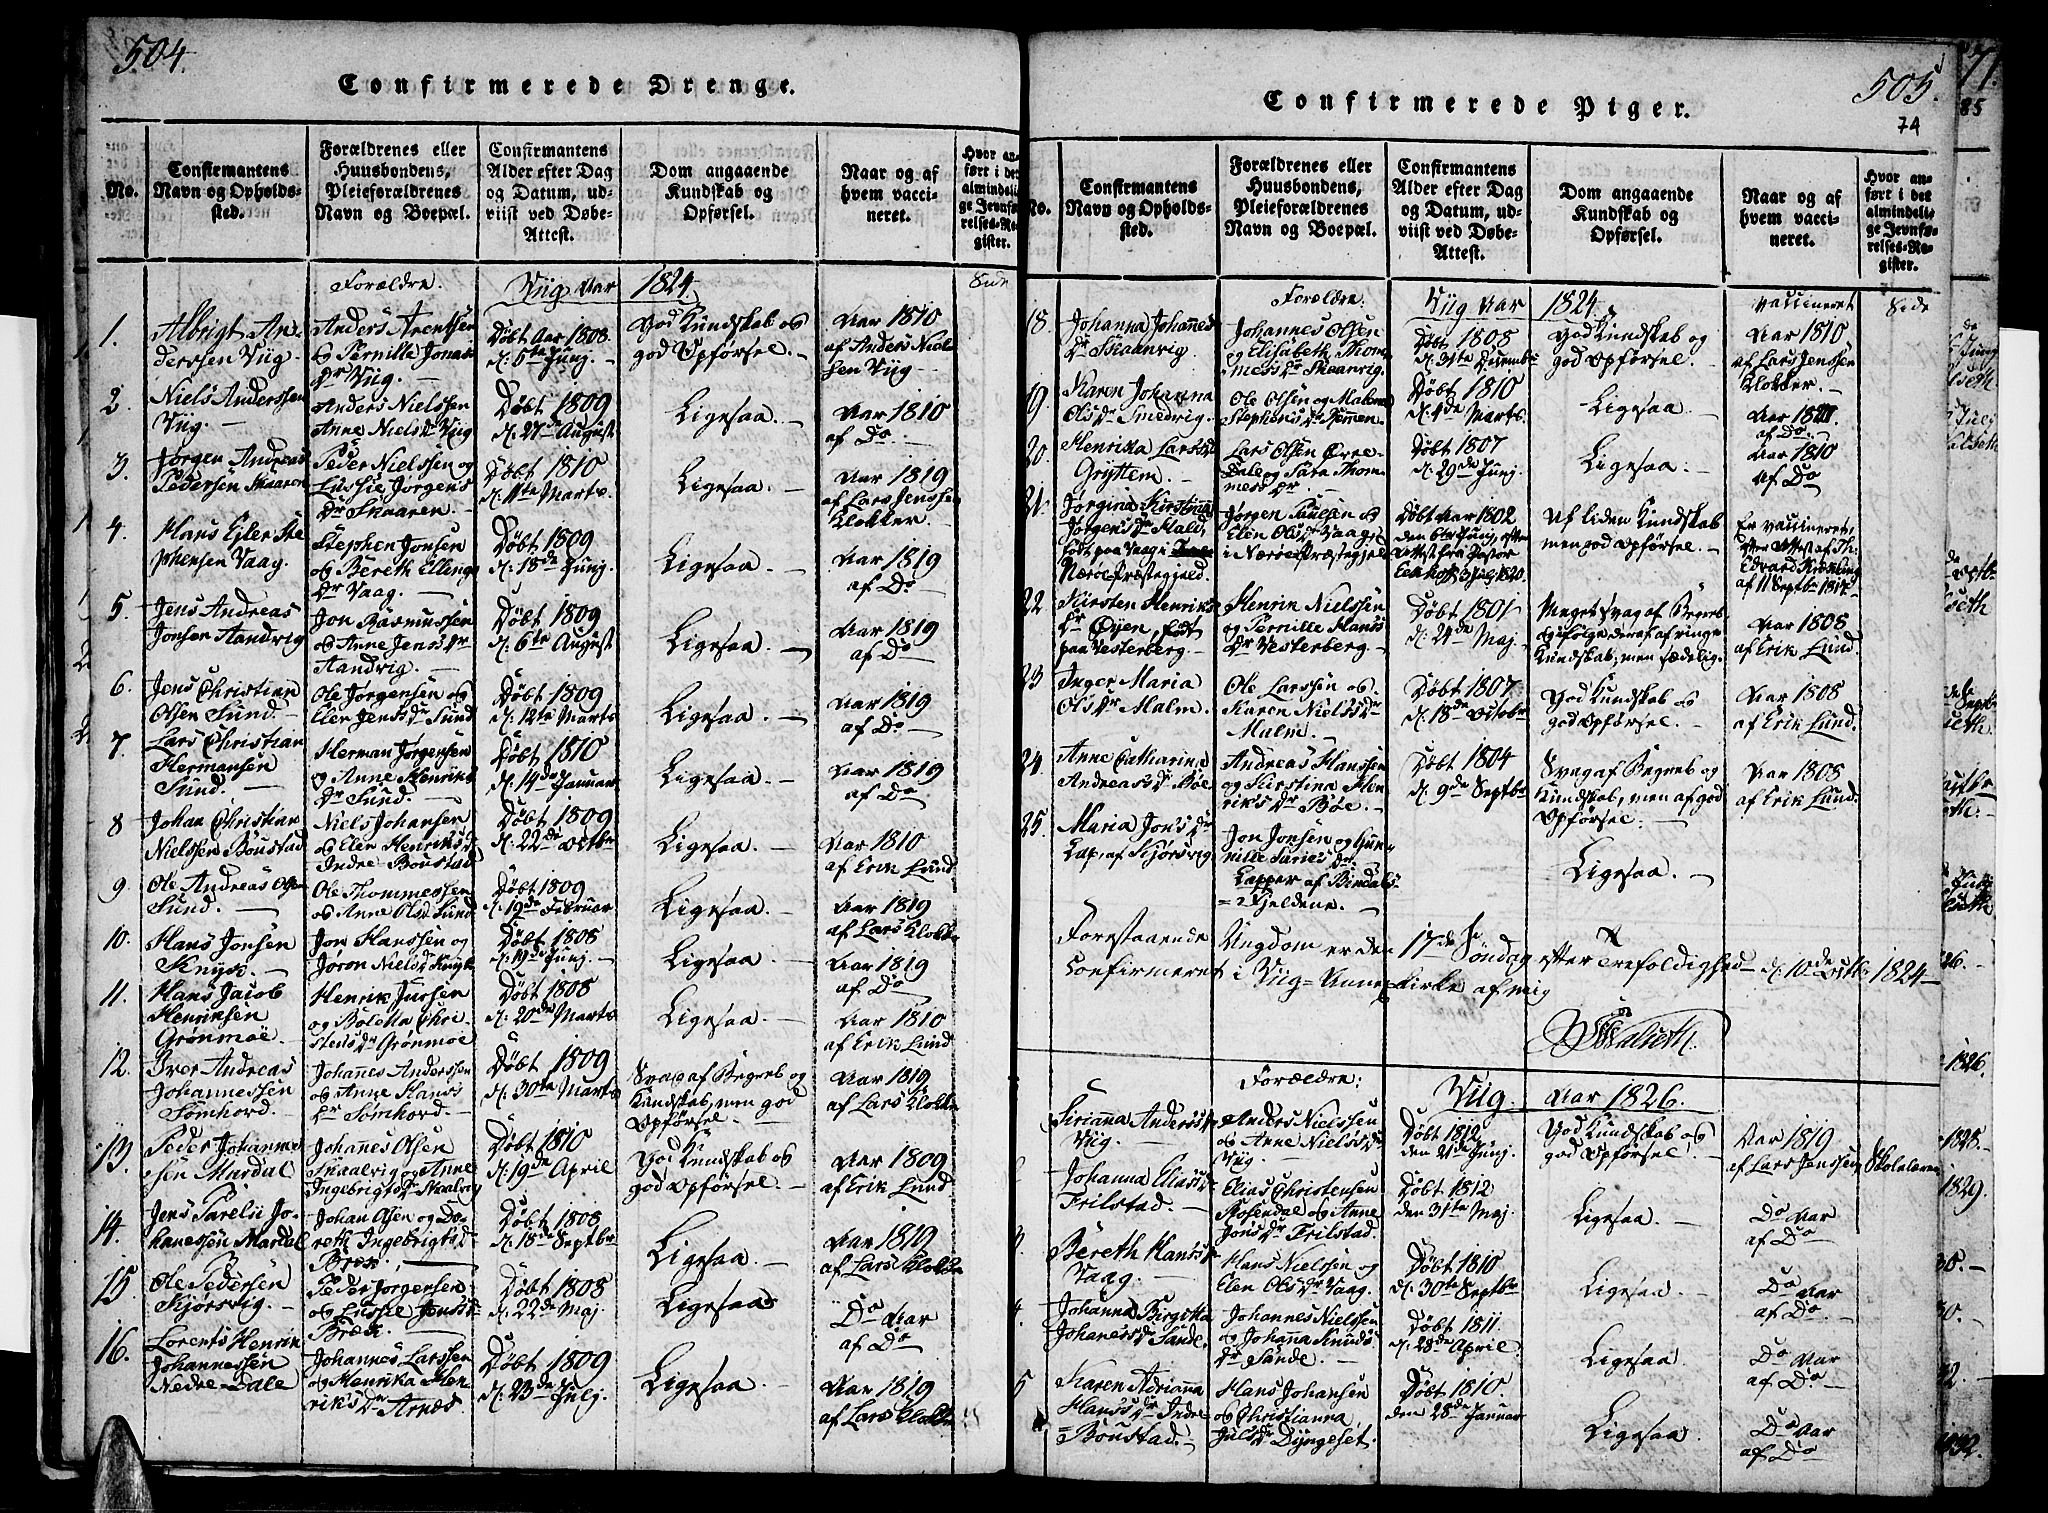 504.
Confirmerede Drenge.
No.
Confirmantens Navn og Opholds-sted.
Forældrenes eller Huusbondens, Pleieforældrenes Navn og Boepæl.
Confirmantens Alder efter Dag og Datum, ud-viist ved Døbe-Attest.
Dom angaaende Kundskab og Opførsel.
Naar og af hvem vacci-neret.
Hvor an-ført i det almindeli-ge Jevnfø-relses-Re-gister.
Forældre.
Viig Aar 1824.
Side
1. Albrigt An-
derssen Viig
Anders Arentsen
og Pernille Jonas
Dr Viig.
Døbt Aar 1808
d. 5te Junj.
God Kundskab og
god Opførsel.
Aar 1810
af Anders Niel-
sen Viig
2. Niels Anderssen
Viig.
Anders Nielssen
Anne Nielsdr Viig
Døbt 1809
d. 27de August
Ligesaa.
Aar 1810
af Do
3. Jørgen Andreas
Pedersen Skaaren
Peder Nielssen og
Lussie Jørgens
Dr Skaaren.
Døbt 1810
d. 11te Marts.
Ligesaa.
Aar 1819
af Lars Jenssen
Klokker.
4. Hans Ejler Ste
phensen Vaag.
Stephen Jonsen
og Bereth Ellings
Dr Vaag.
Døbt 1809
d. 18de Junj.
Ligesaa.
Aar 1819
af Do
5. Jens Andreas
Jonsen Aandvig
Jon Rasmussen
og Anne Jens Dr
Aandvig.
Døbt 1809
d. 6te August
Ligesaa.
Aar 1819
af Do
6. Jens Christian
Olsen Sund.
Ole Jørgensen og
Elen Jensdr Sund
Døbt 1809
d. 12te Marts
Ligesaa.
Aar 1819
af Do
7. Lars Christian
Hermansen
Sund.
Herman Jørgensen
og Anne Henriks
Dr Sund.
Døbt 1810
d. 14de Januar
Ligesaa.
Aar 1819
af Do
8 Johan Christian
Nielssen Bøustad
Niels Johansen
og Elen Henriks
Indre Bøustad
Døbt 1809
d. 22de Octbr
Ligesaa.
Aar 1810
af Erik Lund
9. Ole Andreas Olsen
Sund.
Ole Thommessen
og Anne Olsd Sund
Døbt 1809
d. 19de Februar
Ligesaa.
Aar 1819
af Lars Klokker
10. Hans Jonsen
Knyk.
Jon Hanssen og
Jøron Nielsd Knyk
Døbt 1808
d. 19de Junj.
Ligesaa.
Aar 1819
af Do
11. Hans Jacob
Henriksen
Grønmoe.
Henrik Jussen
og Boletta Chri
stens Dr Grønmoe
Døbt 1808
d. 20de Marts
Ligesaa.
Aar 1810
af Erik Lund
12. Iver Andreas
Johannessen
Sømhord.
Johannes Anderssen
og Anne Hans
Dr Sømhord.
Døbt 1809
d. 30te Marts
Svag af Begreb og
Kundskab, men god
Opførsel.
Aar 1819
af Lars Klokker
13. Peder Johanne
sen Mardal
Johannes Olsen
Skaalvig og Anne
Ingebrigtsdr Skaalvig
Døbt 1810
d. 19de April
God Kundskab og
god Opførsel.
Aar 1809
af Erik Lund
14. Jens Parelii Jo-
hanessen Mardal
Johan Olsen og Do-
reth Ingebrigtsd
Bræk.
Døbt 1808
d. 18de Septbr
Ligesaa.
Aar 1819
af Lars Klokker
15. Ole Pedersen
Skjørsvig.
Peder Jørgensen
og Lussie Jons
Bræk.
Døbt 1808
d. 22de Maj.
Ligesaa
Do Aar
af Do
16. Lorents Henrik
Johannessen
Nedre Dale
Johannes Larssen
og Henrika Hen
riks Dr Arnæs.
Døbt 1809
d. 23de Julj.
Ligesaa.
Aar 1819
af Lars Klokker
505.
74
Confirmerede Piger.
No.
Confirmantens Navn og Opholds-sted.
Forældrenes eller Huusbondens, Pleieforældrenes Navn og Boepæl.
Confirmantens Alder efter Dag og Datum, ud-viist ved Døbe-Attest.
Dom angaaende Kundskab og Opførsel.
Naar og af hvem vacci-neret.
Hvor an-ført i det almindeli-ge Jevnfø-relses-Re-gister.
Forældre:
Viig Aar 1824.
vaccineret
Side
18. Johanna Johannes
Dr Skaanvig.
Johannes Olsen
og Elisabeth Thom
mess Dr Skaanvig.
Døbt 1808
d. 31te Decembr
God Kundskab og
god Opførsel.
Aar 1810
af Lars Jenssen
Klokker.
19. Karen Johanna
Olsdr Smedvig.
Ole Olsen og Malena
Stephensdr Remmen.
Døbt 1810
d. 4de Marts.
Ligesaa.
af Do.
20. Henrika Larsdr
Gryttem.
Lars Olsen Øvre
Dale og Sara Thom
mess Dr
Døbt 1807
d. 29de Junj.
Ligesaa.
Aar 1810
af Do
21. Jørgina Kirstina
Jørgensdr Hald,
født paa Vaage
Nærøe Præstegjeld.
Jørgen Paulsen og
Elen Olsdr Vaage
i Nærøe Præstegjel
Døbt Aar 1802
den 6te Junj, efter
Attest fra Pastor
3 Julj 1820.
Af liden Kundskab
men god Opførsel.
Er vaccineret,
efter Attest af Th.
Edvard
af 11 Septbr
22 Kirsten Henriks
Dr Øyen, født
paa Vesterberg
Henrik Nielssen
og Pernille Hans
Dr Vesterberg
Døbt 1801
d. 24de Maj
Meget svag af Begreb
og ifølge deraf af ringe
Kundskab, men sædelig.
Aar 1808
af Erik Lund.
23 Inger Maria
Olsdr Malm.
Ole Larssen og
Karen Nielsdr
Malm.
Døbt 1807
d. 18de October
God Kundskab og
god Opførsel.
Aar 1808
af Erik Lund
24. Anne Catharina
Andreasdr Bøe.
Andreas Hanssen
og Kirstina Hen
riks Dr Bøe.
Døbt 1804
d. 9de Septbr
Svag af Begreb og
Kundskab, men af god
Opførsel.
Aar 1808
af Erik Lund.
25. Maria Jons Dr
Lap, af Skjørsvig
Jon Jonsen og Gun-
nille Saries Dr
Lapper af Bindals-
Fjeldene.
Ligesaa.
Forestaaende Ungdom er den 17de Søndag efter Trefoldighed d. 10de Octbr 1824
confirmeret i Viig-Annexkirke af mig
Forældre:
Viig. Aar 1826.
Sirianna Andersdr
Viig.
Anders Nielssen
og Anne Nielsdr
Viig.
Døbt 1812
den 21de Junj.
God Kundskab og
god Opførsel.
Aar 1819
af Lars Jenssen Skolelærer
Johanna Eliasdr
Frilstad.
Elias Christensen
Rosendal og Anne
Jons Dr Frilstad.
Døbt 1812
den 31te Maj.
Ligesaa.
Do Aar
af Do
3. Bereth Hansdr
Vaag.
Hans Nielssen og
Elen Olsdr Vaag.
Døbt 1810
d. 30te Septbr
Ligesaa.
Do Aar
af Do
4. Johanna Birgitta
Johanesdr Sande.
Johannes Nielssen
og Johanna Knuds
Dr Sande.
Døbt 1811.
d. 28de April.
Ligesaa.
Do Aar
af Do
5 Karen Adrianna
Hansdr Indre
Bøustad.
Hans Johansen
og Christianna
Julsdr Dyngeset.
Døbt 1810.
den 28de Januar
Ligesaa.
Do Aar
af Do